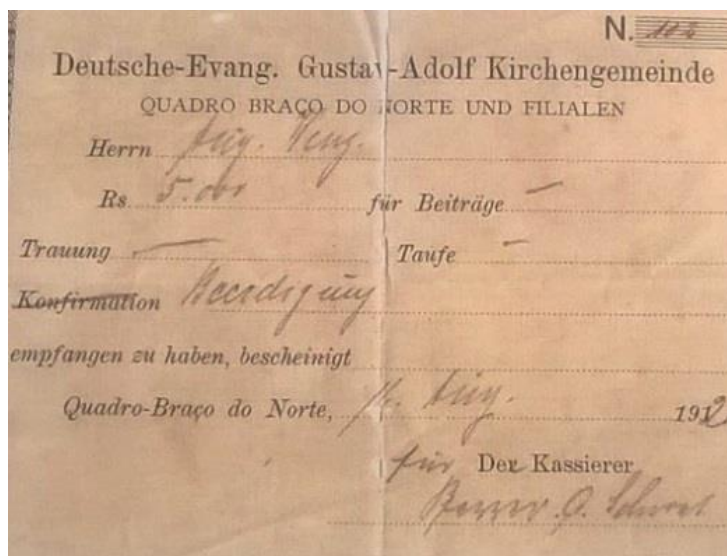 N. 102
Deutsche-Evang. Gustav-Adolf Kirchengemeinde
QUADRO BRAÇO DO NORTE UND FILIALEN
Herrn Aug.
Rs 5.000 für Beiträge —
Trauung — Taufe —
Konfirmation Beerdigung
empfangen zu haben, bescheinigt
Quadro-Braço do Norte, Aug. 191
für Der Kassierer
Pfarrer O.